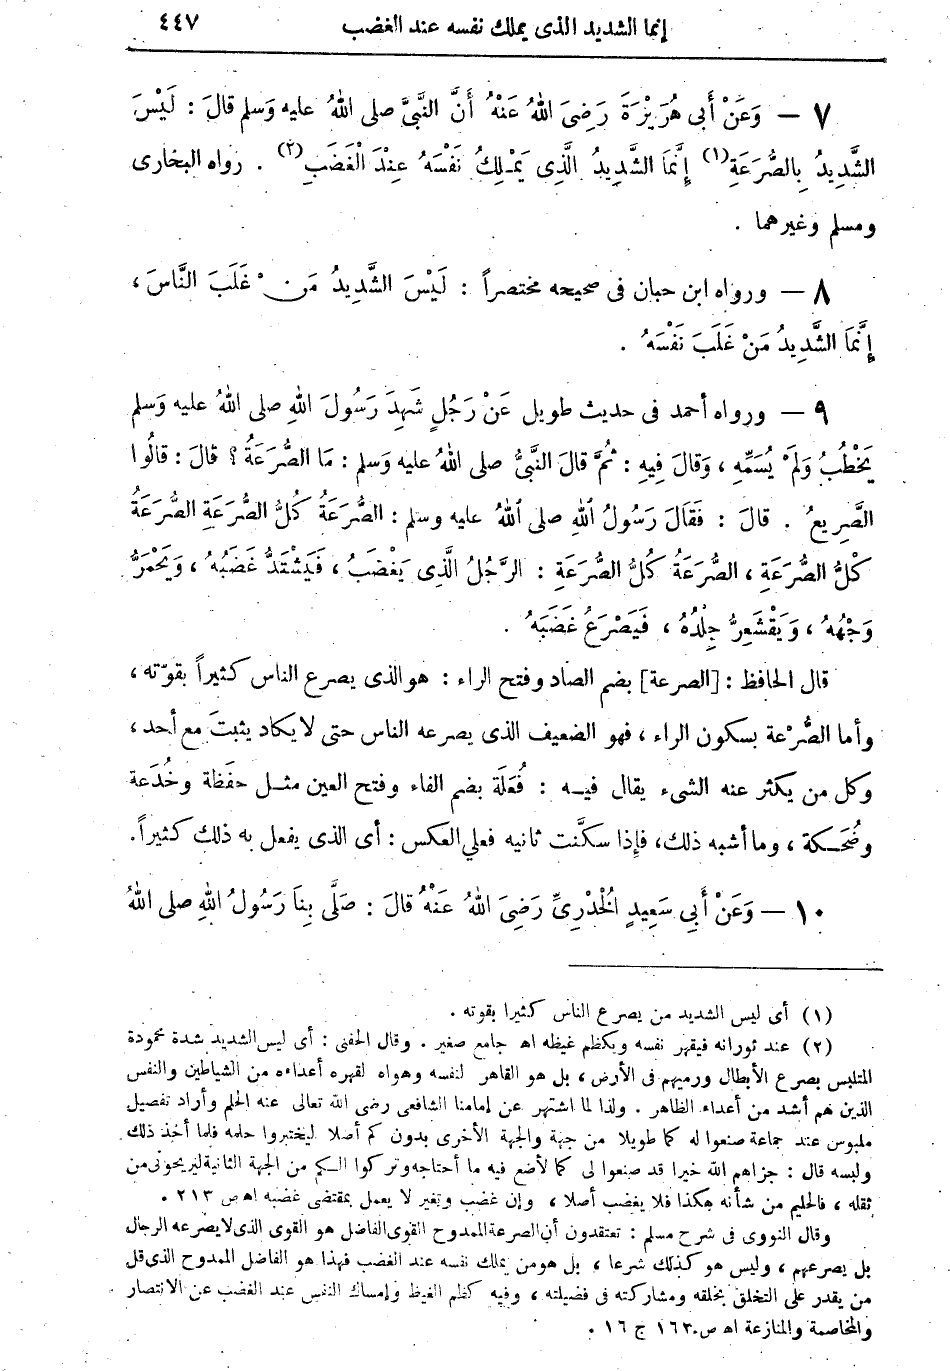 إنما الشديد الذى يملك نفسه عند الغضب ٤٤٧
٧ — وَعَنْ أَبِى هُرَيْرَةَ رَضِىَ اللهُ عَنْهُ أَنَّ النَّبِىَّ صلى اللهُ عليه وَسلم قالَ : لَيْسَ
الشَّدِيدُ بِالصُّرَعَةِ (١) إِنَّمَا الشَّدِيدُ الَّذِى يَمْلِكُ نَفْسَهُ عِنْدَ الْغَضَبِ (٢) . رواه البخارى
ومسلم وغيرهما .
٨ — ورواه ابن حبان فى صحيحه مختصراً : لَيْسَ الشَّدِيدُ مَنْ غَلَبَ النَّاسَ ،
إِنَّمَا الشَّدِيدُ مَنْ غَلَبَ نَفْسَهُ .
٩ — ورواه أحمد فى حديث طويل عَنْ رَجُلٍ شَهِدَ رَسُولَ اللهِ صلى اللهُ عليه وَسلم
يَخْطُبُ وَلَمْ يُسَمِّهِ ، وَقالَ فِيهِ : ثُمَّ قالَ النَّبىُّ صلى اللهُ عليه وَسلم : مَا الصُّرَعَةُ ؟ قالَ : قالُوا
الصَّرِيعُ . قالَ : فَقَالَ رَسُولُ اللهِ صلى اللهُ عليه وسلم : الصُّرَعَةُ كُلُّ الصُّرَعَةِ الصُّرَعَةُ
كُلُّ الصُّرَعَةِ ، الصُّرَعَةُ كُلُّ الصُّرَعَةِ : الرَّجُلُ الَّذِى يَغْضَبُ ، فَيَشْتَدُّ غَضَبُهُ ، وَيَحْمَرُّ
وَجْهُهُ ، وَيَقْشَعِرُّ جِلْدُهُ ، فَيَصْرَعُ غَضَبَهُ .
قال الحافظ : [الصرعة] بضم الصاد وفتح الراء : هو الذى يصرع الناس كثيراً بقوّته ،
وأما الصُّرْعة بسكون الراء ، فهو الضعيف الذى يصرعه الناس حتى لا يكاد يثبت مع أحد ،
وكل من يكثر عنه الشىء يقال فيه : فُعَلَة بضم الفاء وفتح العين مثل حفَظة وخُدَعة
وضُحَكة ، وما أشبه ذلك، فإذا سكَّنت ثانيه فعلى العكس : أى الذى يفعل به ذلك كثيراً.
١٠ — وَعَنْ أَبِي سَعِيدٍ الْخُدْرِىِّ رَضِىَ اللهُ عَنْهُ قالَ : صَلَّى بِنَا رَسُولُ اللهِ صلى اللهُ
(١) أى ليس الشديد من يصرع الناس كثيرا بقوته .
(٢) عند ثورانه فيقهر نفسه ويكظم غيظه اه جامع صغير . وقال الحفنى : أى ليس الشديد شدة محمودة
المتلبس بصرع الأبطال ورميهم فى الأرض ، بل هو القاهر لنفسه وهواه لقهره أعداءه من الشياطين والنفس
الذين هم أشد من أعداء الظاهر . ولذا لما اشتهر عن إمامنا الشافعى رضى الله تعالى عنه الحلم وأراد تفصيل
ملبوس عند جماعة صنعوا له كما طويلا من جهة والجهة الأخرى بدون كم أصلا ليختبروا حلمه فلما أخذ ذلك
ولبسه قال : جزاهم الله خيرا قد صنعوا لى كما لأضع فيه ما أحتاجه وتركوا الكم من الجهة الثانية ليريحونى من
ثقله ، فالحليم من شأنه هكذا فلا يغضب أصلا ، وإن غضب وتغير لا يعمل بمقتضى غضبه اه ص ٢١٣ .
وقال النووى فى شرح مسلم : تعتقدون أن الصرعة الممدوح القوى الفاضل هو القوى الذى لا يصرعه الرجال
بل يصرعهم ، وليس هو كذلك شرعا ، بل هو من يملك نفسه عند الغضب فهذا هو الفاضل الممدوح الذى قل
من يقدر على التخلق بخلقه ومشاركته فى فضيلته ، وفيه كظم الغيظ وإمساك النفس عند الغضب عن الانتصار
والمخاصمة والمنازعة اه ص ١٦٣ ج ١٦ .